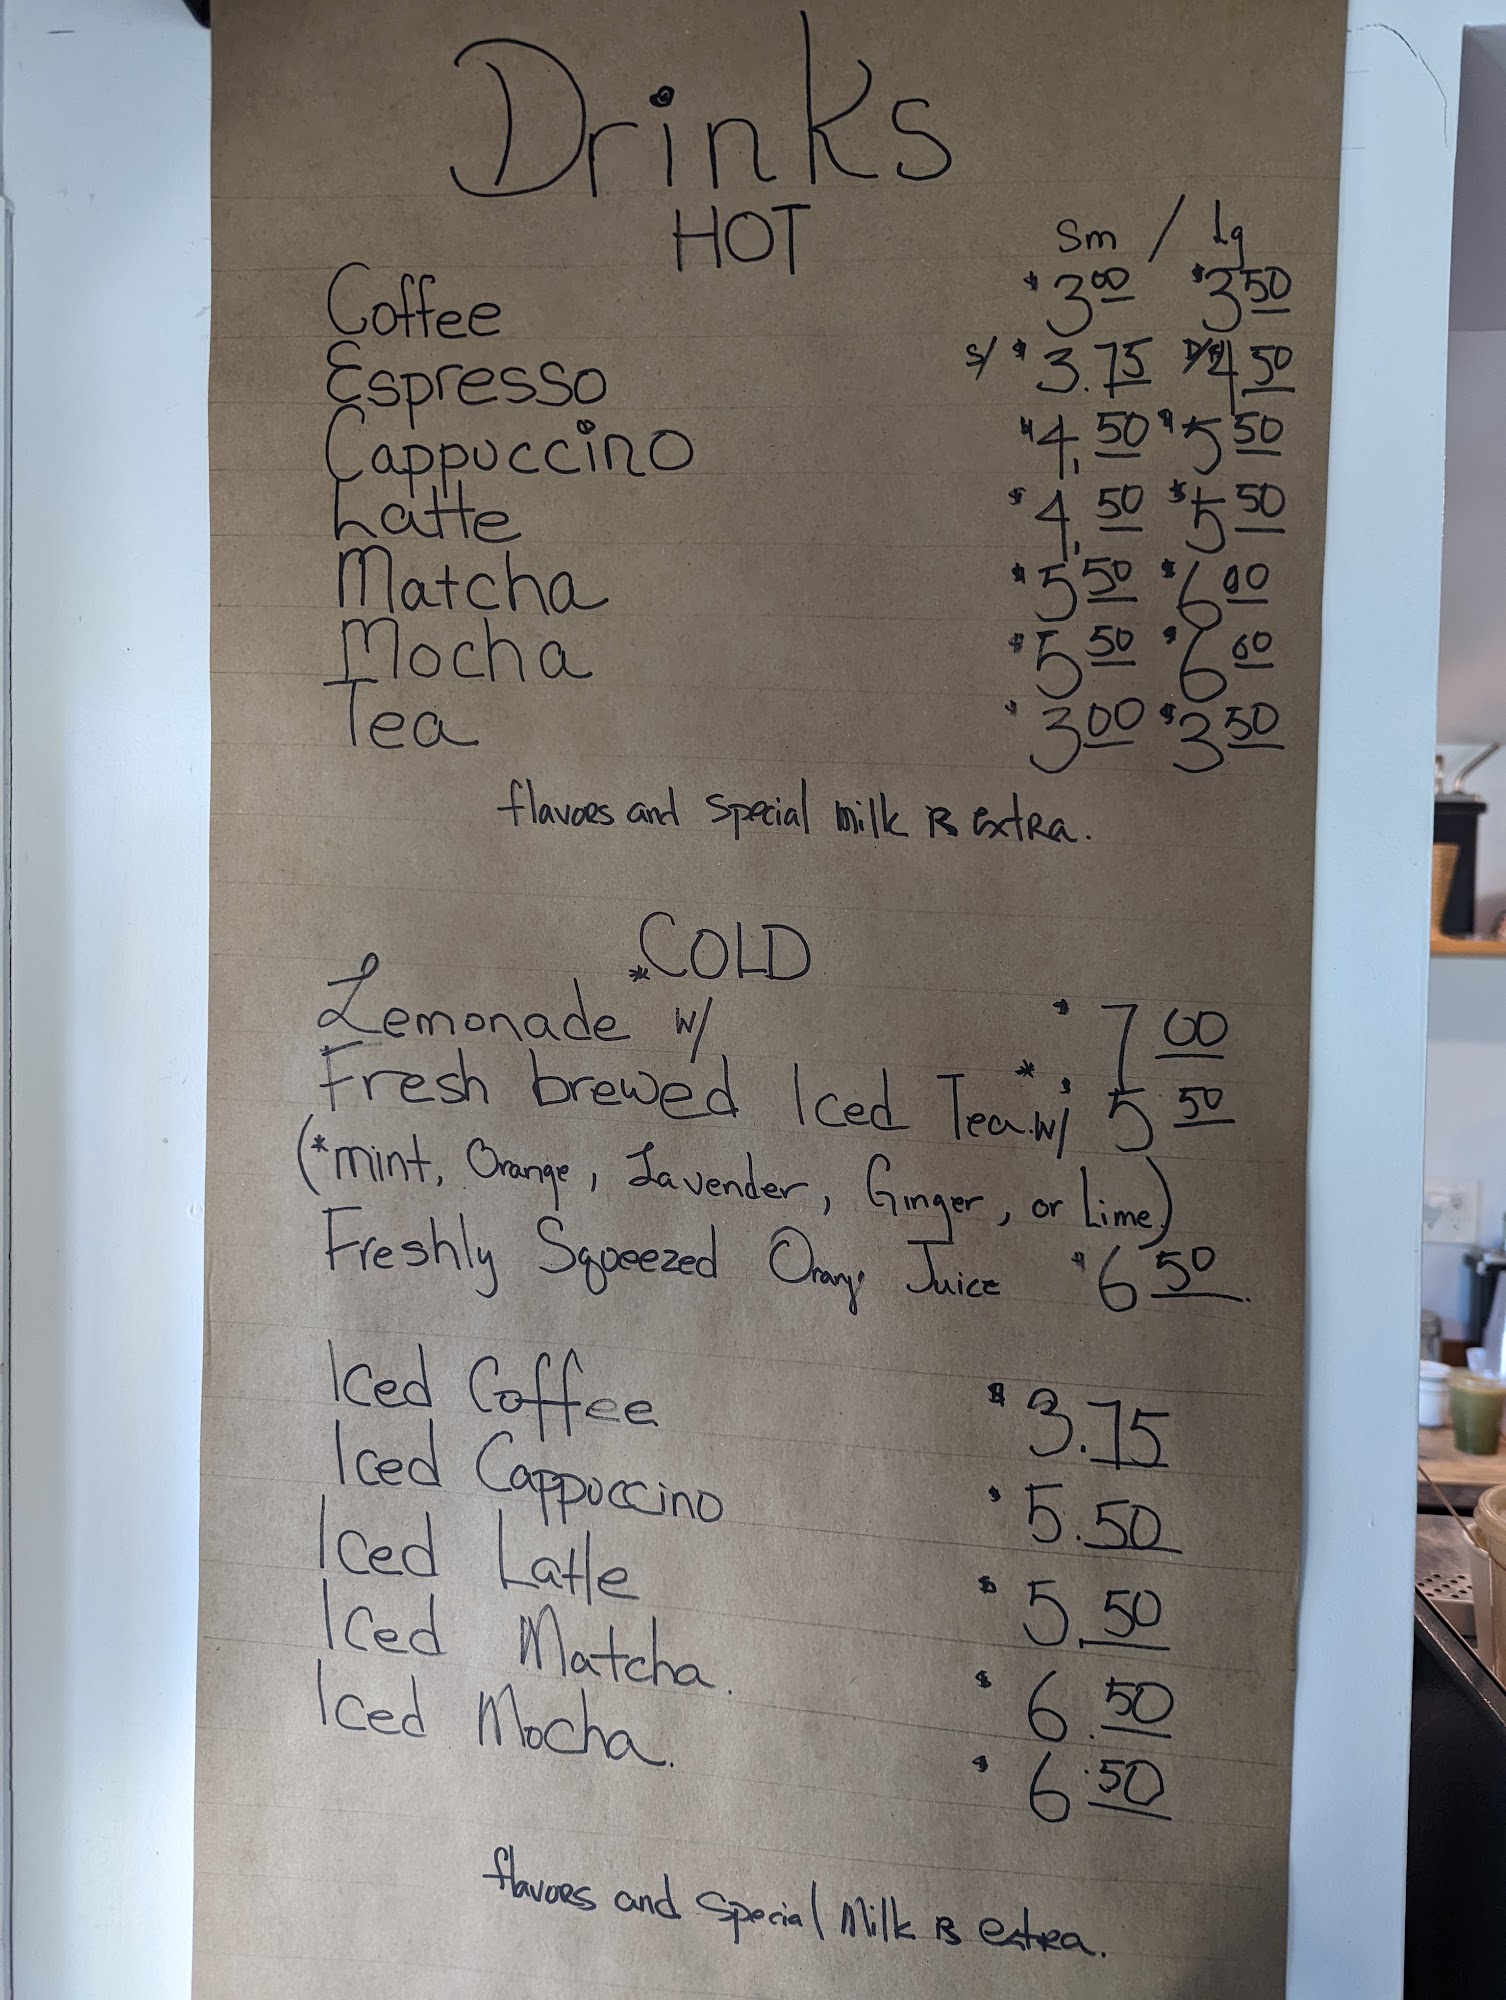 Drinks
HOT
Sm / Lg
Coffee $3.00 $3.50
Espresso S/ $3.75 D/$4.50
Cappuccino $4.50 $5.50
Latte $4.50 $5.50
Matcha $5.50 $6.00
Mocha $5.50 $6.00
Tea $3.00 $3.50
flavors and special milk is extra.
COLD
Lemonade* w/ $7.00
Fresh brewed Iced Tea* w/ $5.50
(*mint, Orange, Lavender, Ginger, or Lime)
Freshly Squeezed Orange Juice $6.50
Iced Coffee $3.75
Iced Cappuccino $5.50
Iced Latte $5.50
Iced Matcha. $6.50
Iced Mocha. $6.50
flavors and special Milk is extra.